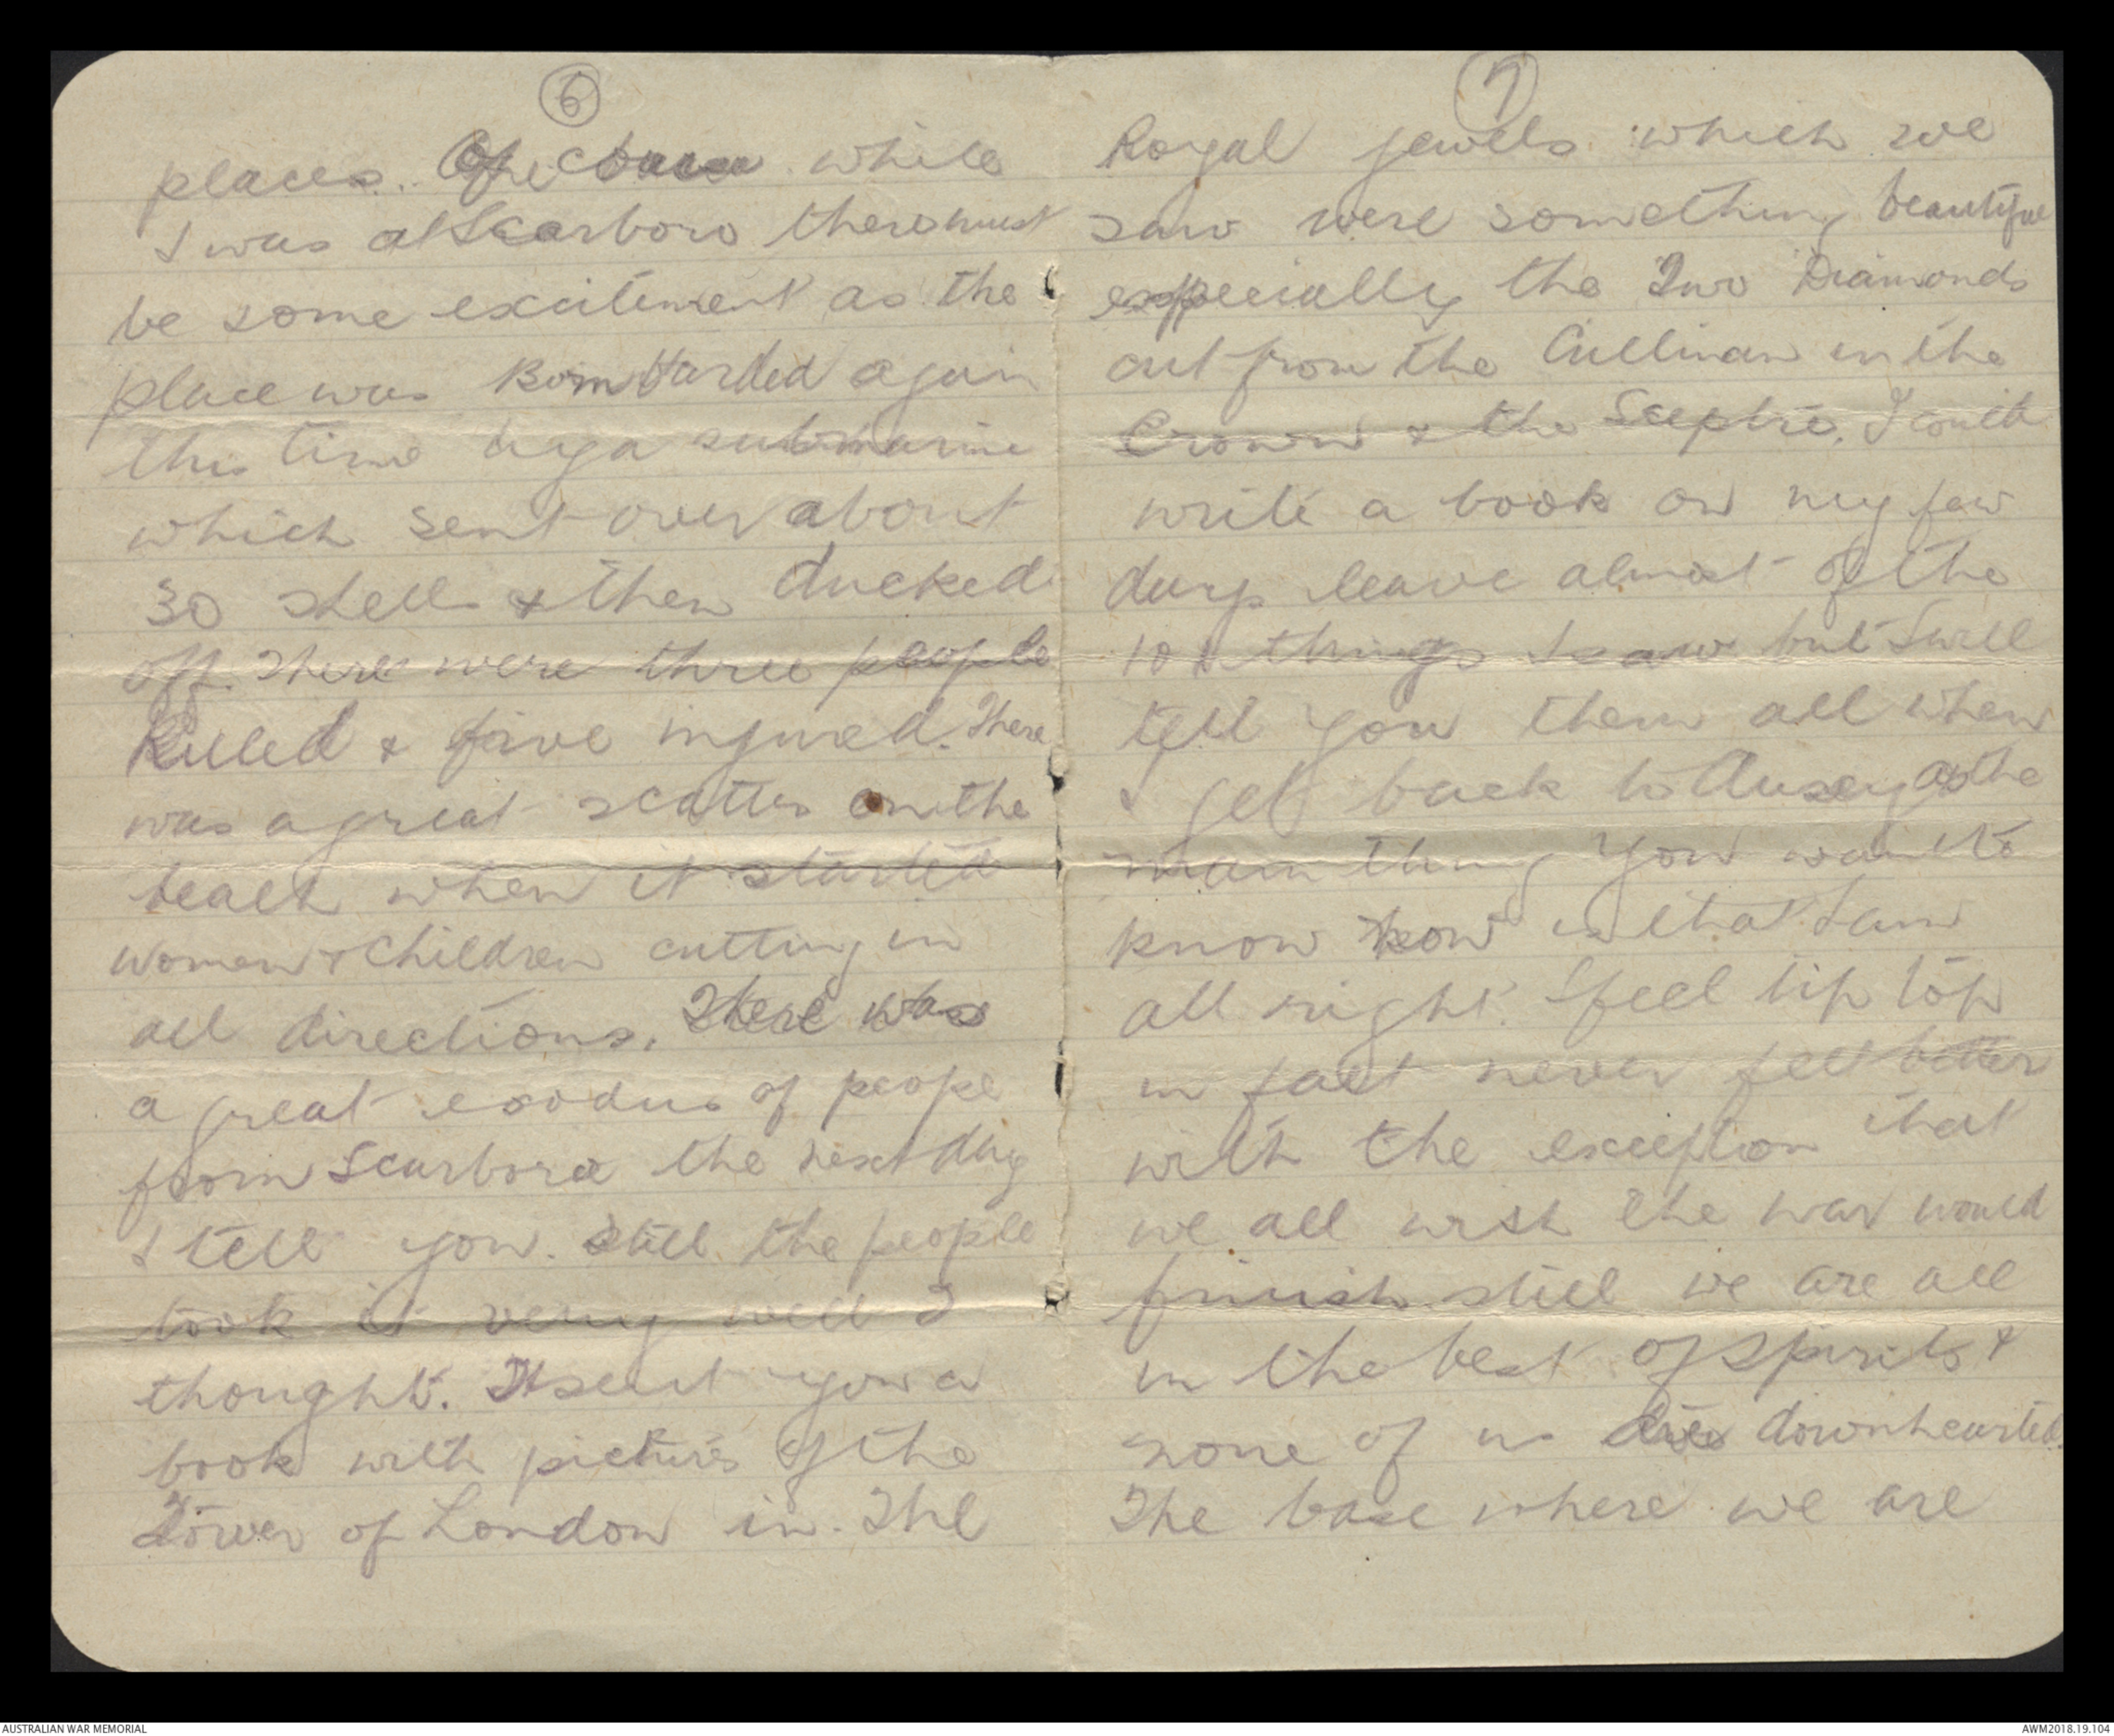 6
places. Of course while
I was at Scarboro there must
be some excitement as the
place was Bombarded again
this time by a submarine
which sent over about
30 shells & then ducked
off. There were three people
Killed & five injured. There
was a great scatter on the
beach when it started
women & children cutting in
all directions. There was
a great exodus of peope
from Scarboro the next day
I tell you. Still the people
took it very well I
thought. I sent you a
book with pictures of the
Tower of London in. The
7
Royal jewels which we
saw were something beautiful
especially the Two Diamonds
cut from the Cullinan in the
Crown & the Sceptre. I could
write a book on my few
days leave almost of the
things I saw but I will
tell you them all when
I get back to Aussy as the
main thing you want to
know now is that I am
all right. I feel tip top
in fact never felt better
with the exception that
we all wish the war would
finish still we are all
in the best of spirits &
none of us are downhearted.
The base where we are
AUSTRALIAN WAR MEMORIAL
AWM2018.19.104